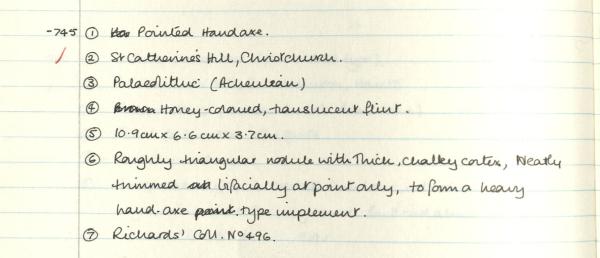 -745 ① Pointed Handaxe.
② St Catherine's Hill, Christchurch.
③ Palaeolithic (Acheulean)
④ Brown Honey-coloured, translucent flint.
⑤ 10.9cm x 6.6cm x 3.7cm.
⑥ Roughly triangular nodule with thick, chalky cortex, Neatly
trimmed bifacially at point only, to form a heavy
hand-axe point. type implement.
⑦ Richards' Coll. No 496.